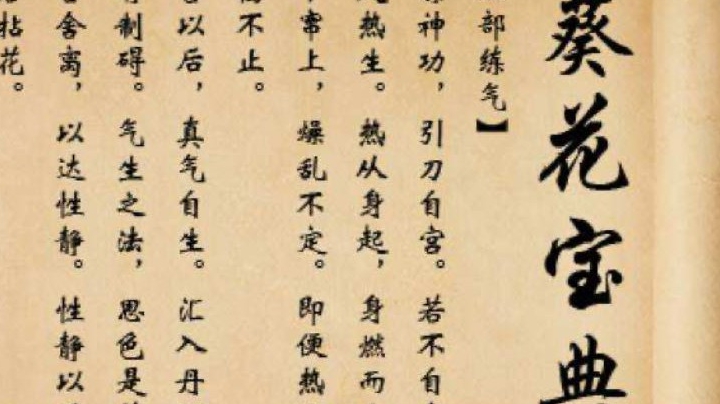 葵花宝典
部练气】
神功，引刀自宫。若不自
热生。热从身起，身燃而
常上，燥乱不定。即便热
不止。
以后，真气自生。汇入丹
制碍。气生之法，思色是
舍离，以达性静。性静以
拈花。